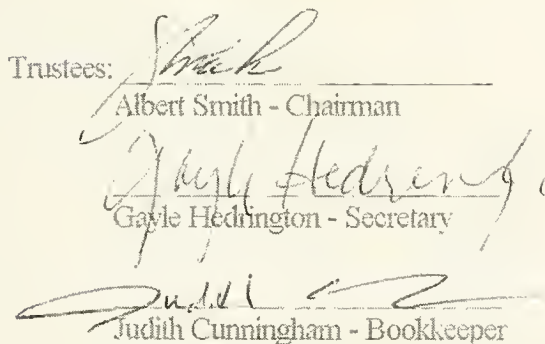 Trustees: Smith
Albert Smith - Chairman
Gayle Hedring
Gayle Hedrington - Secretary
Judith
Judith Cunningham - Bookkeeper